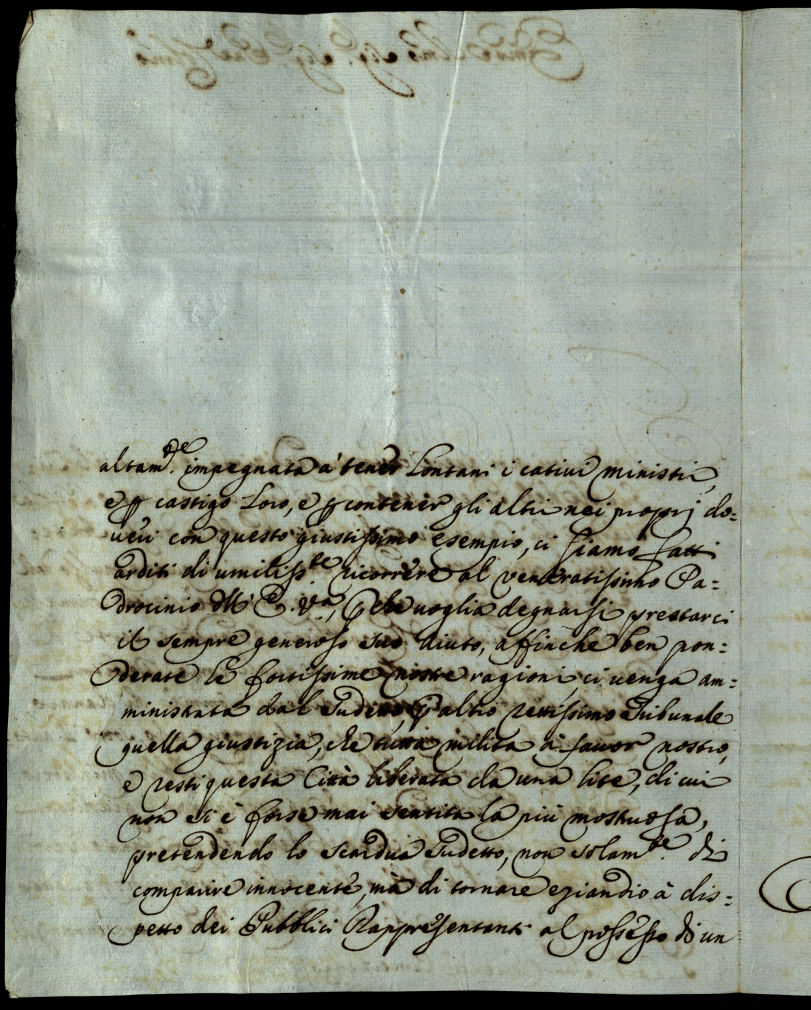 altam.te impegnata à tener Lontani i cativi ministri,
e p castigo Loro, e p contener gli altri nei proprj do=
veri con questo giustissimo esempio, ci siamo fatti
arditi di umiliss.te ricorrere al veneratissimo Pa=
drocinio di E. V.a, che voglia degnarsi prestarci
il sempre generoso suo aiuto, affinche ben pon=
derate le fortissime nostre ragioni, ci venga am=
ministrata dal sudetto, p altro rettissimo Tribunale
quella giustizia, che tutta milita à favor nostro,
e resti questa Città liberata da una lite, di cui
non si è forse mai sentita la più mostruosa,
pretendendo lo Scardua sudetto, non solam.te di
comparire innocente, mà di tornare eziandio à dis=
petto dei Pubblici Rappresentanti al possesso di un